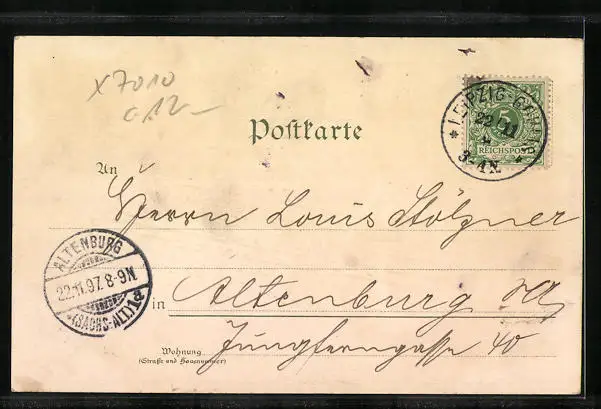 x7010
c 12-
Postkarte
5
REICHSPOST
* LEIPZIG-
22 11
3-4N.
An
Herrn Louis Stölzner
ALTENBURG
22.11.97. 8-9N
*(SACHS.-ALT.)1d
in Altenburg S/A
Wohnung
(Straße und Hausnummer)
Jungferngasse 40